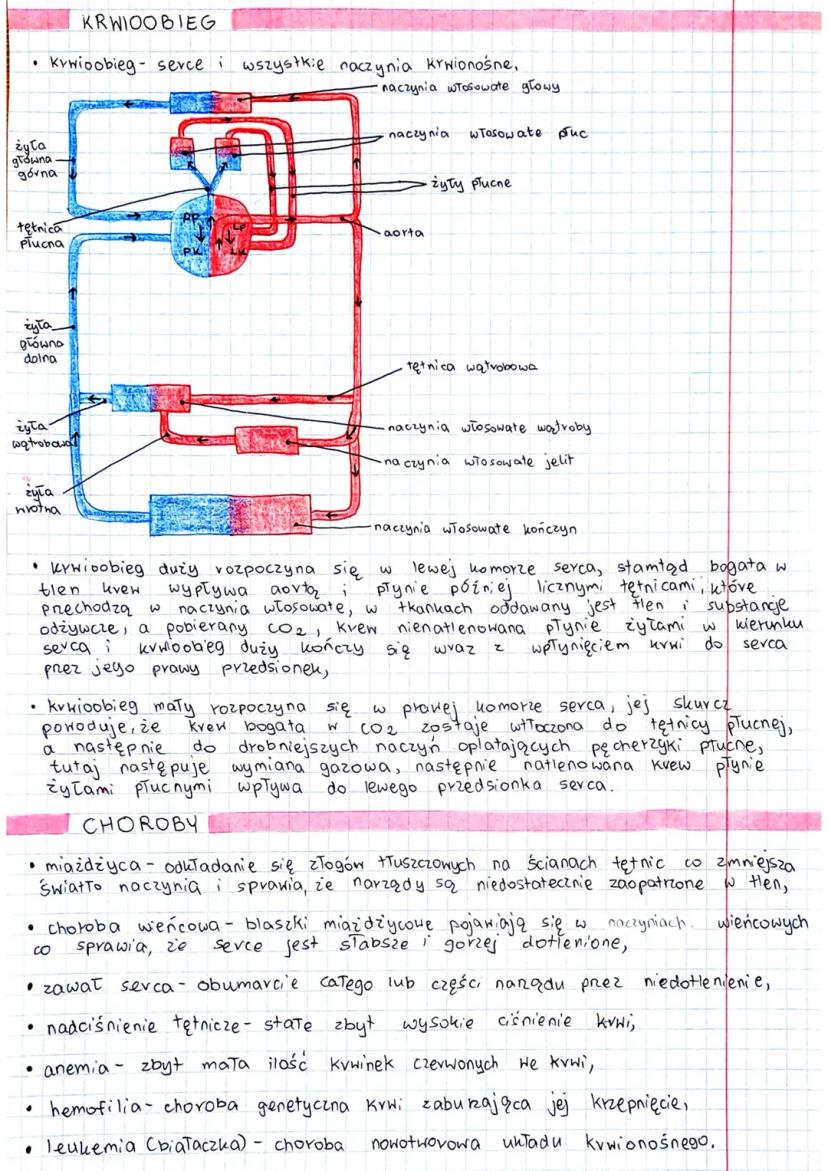 KRWIOOBIEG
• krwioobieg - serce i wszystkie naczynia krwionośne,
naczynia włosowate głowy
naczynia włosowate płuc
żyła
główna
górna
żyły płucne
tętnica
płucna
RP
LP
PK
LK
aorta
żyła
główna
dolna
tętnica wątrobowa
żyła
wątrobowa
naczynia włosowate wątroby
naczynia włosowate jelit
żyła
wrotna
naczynia włosowate kończyn
• krwioobieg duży rozpoczyna się w lewej komorze serca, stamtąd bogata w
tlen krew wypływa aortą i płynie później licznymi tętnicami, które
przechodzą w naczynia włosowate, w tkankach oddawany jest tlen i substancje
odżywcze, a pobierany CO2, krew nienatlenowana płynie żyłami w kierunku
serca i krwioobieg duży kończy się wraz z wpłynięciem krwi do serca
przez jego prawy przedsionek,
• krwioobieg mały rozpoczyna się w prawej komorze serca, jej skurcz
powoduje, że krew bogata w CO2 zostaje wtłoczona do tętnicy płucnej,
a następnie do drobniejszych naczyń oplatających pęcherzyki płucne,
tutaj następuje wymiana gazowa, następnie natlenowana krew płynie
żyłami płucnymi wpływa do lewego przedsionka serca.
CHOROBY
• miażdżyca - odkładanie się złogów tłuszczowych na ścianach tętnic co zmniejsza
światło naczynia i sprawia, że narządy są niedostatecznie zaopatrzone w tlen,
• choroba wieńcowa - blaszki miażdżycowe pojawiają się w naczyniach wieńcowych
co sprawia, że serce jest słabsze i gorzej dotlenione,
• zawał serca - obumarcie całego lub części narządu przez niedotlenienie,
• nadciśnienie tętnicze - stałe zbyt wysokie ciśnienie krwi,
• anemia - zbyt mała ilość krwinek czerwonych we krwi,
• hemofilia - choroba genetyczna krwi zaburzająca jej krzepnięcie,
• leukemia (białaczka) - choroba nowotworowa układu krwionośnego.